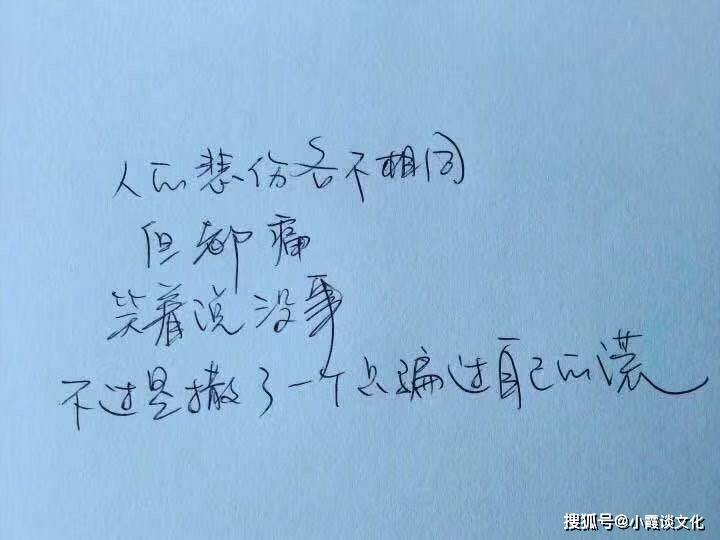 人的悲伤各不相同
但都痛
笑着说没事
不过是撒了一个只骗过自己的谎
搜狐号@小霞谈文化